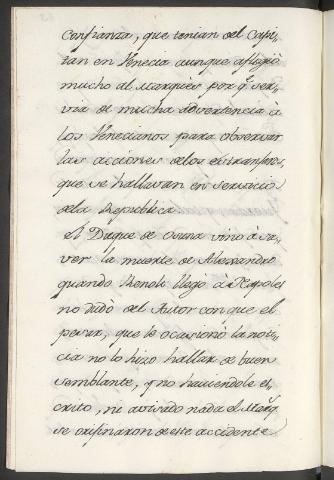 confianza, que tenian del Capi,
tan en Venecia aunque afligiò
mucho al Marques por q.e ser,
via de mucha advertencia à
los Venecianos para observar
las acciones delos estranjeros,
que se hallavan en servicio
dela Republica.
el Duque de Osuna vino à sa,
ver la muerte de Alessandro
quando Renolt llegò à Napoles
no dudò del Autor con que el
pesar, que le ocasionò la noti,
cia no lo hizo hallar de buen
semblante, y no haviendole es,
crito, ni avisado nada el Marq.s
se originaron de este accidente